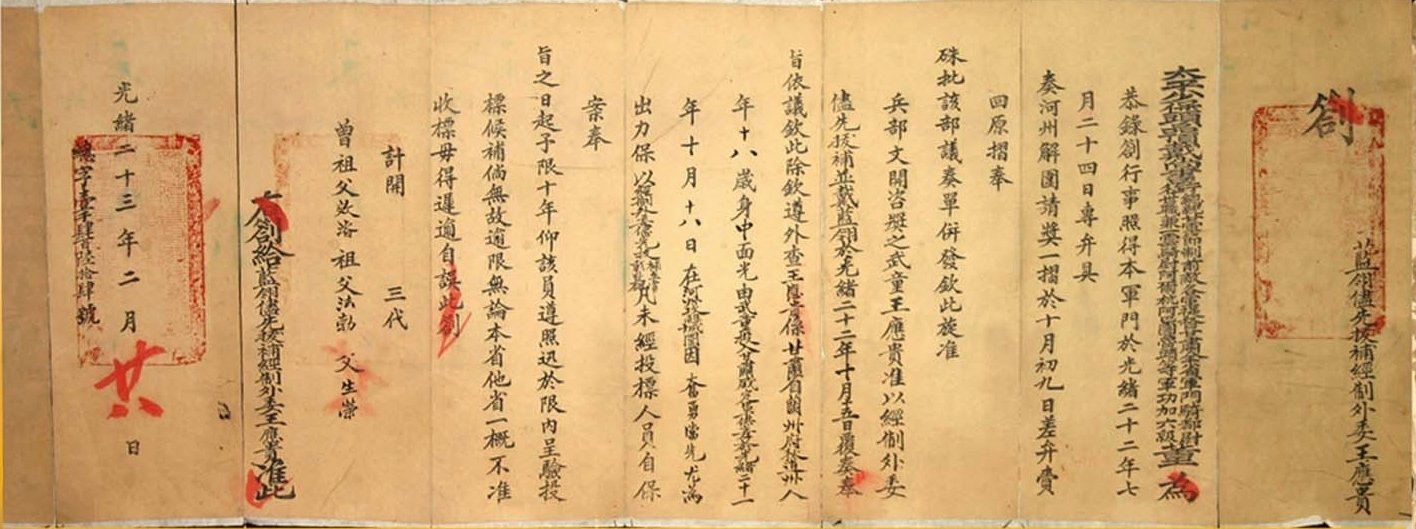 劄
藍翎儘先拔補經制外委王應貴
軍功加六級董 為
恭錄劄行事照得本軍門於光緒二十二年七
月二十四日專弁具
奏河州解圍請獎一摺於十月初九日差弁賫
回原摺奉
硃批該部議奏單併發欽此旋准
兵部文開咨獎之武童王應貴准以經制外委
儘先拔補並戴藍翎於光緒二十二年十月五日覆奏奉
旨依議欽此除欽遵外查王應貴係甘肅省蘭州府 州人
年十八歲身中面光由武童投入甘肅 光緒二十一
年十月十八日在河州解圍因奮勇當先尤為
出力保以 凡未經投標人員自保
案奉
旨之日起予限十年仰該員遵照迅於限內呈驗投
標候補倘無故逾限無論本省他省一概不准
收標毋得遲逾自誤此劄
計開 三代
曾祖父 洛 祖父法勳 父生榮
右劄給藍翎儘先拔補經制外委王應貴准此
光緒二十三年二月廿八日
字壹千肆百陸拾肆號